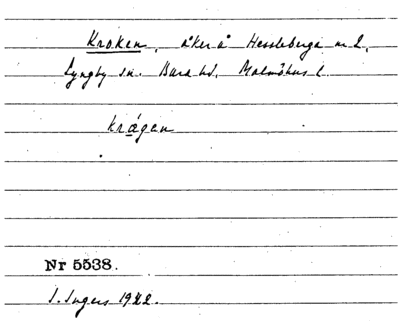 Kroken, åker å Hessleberga nr 2,
Lyngby sn. Bara hd. Malmöhus l.
krågen
Nr 5538.
I. Ingers 1922.